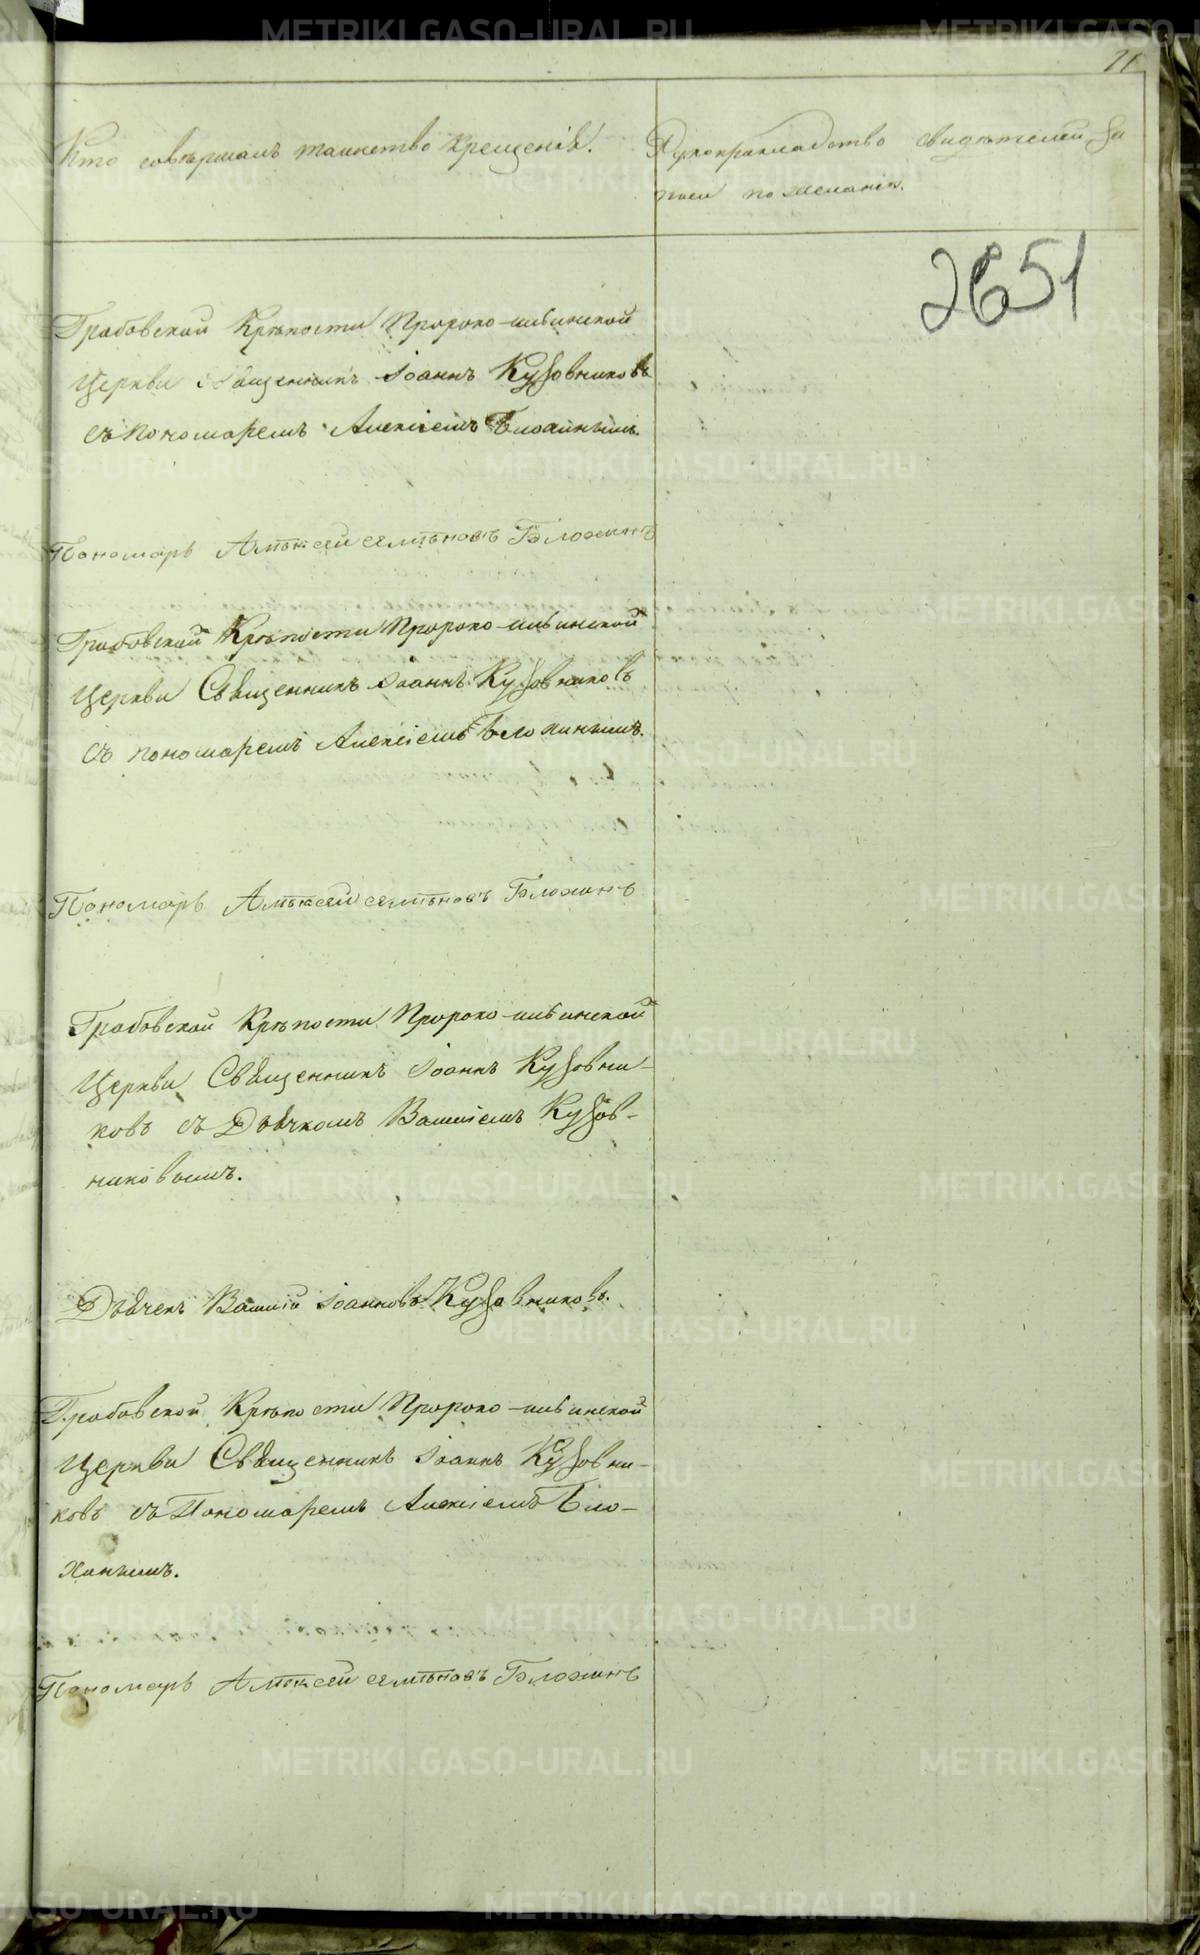 71
Кто совершалъ таинство крещенія.
Рукоприкладство свидѣтелей за
писи по желанію.
2651
Грабовской Крѣпости Пророко-ильинской
Церкви Священникъ Іоаннъ Кузовниковъ
съ пономаремъ Алексіемъ Блохинымъ.
Пономарь Алѣксей семѣновъ Блохинъ
Грабовской Крѣпости Пророко-ильинской
Церкви Священникъ Іоаннъ Кузовниковъ
съ пономаремъ Алексіемъ Блохинымъ.
Пономарь Алѣксей семѣновъ Блохинъ
Грабовской Крѣпости Пророко-ильинской
Церкви Священникъ Іоаннъ Кузовни-
ковъ съ Дьячкомъ Василіемъ Кузов-
никовымъ.
Дьячекъ Василій Іоанновъ Кузовниковъ.
Грабовской Крѣпости Пророко-ильинской
Церкви Священникъ Іоаннъ Кузовни-
ковъ съ Пономаремъ Алексіемъ Бло-
хинымъ.
Пономарь Алѣксей семѣновъ Блохинъ